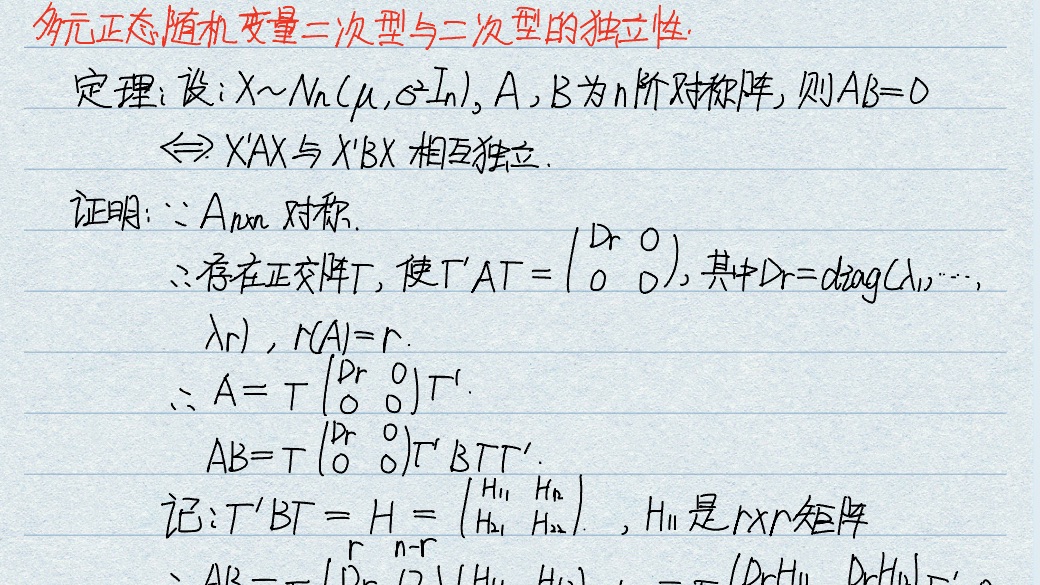 多元正态随机变量二次型与二次型的独立性.
定理:设:X~Nn(μ,σ²In),A,B为n阶对称阵,则AB=0
⇔X'AX与X'BX相互独立.
证明:∵An×n对称.
∴存在正交阵T,使T'AT=(Dr 0; 0 0),其中Dr=diag(λ1,…,
λr),r(A)=r.
∴A=T(Dr 0; 0 0)T'.
AB=T(Dr 0; 0 0)T'BTT'.
记:T'BT=H=(H11 H12; H21 H22).,H11是r×r矩阵
r n-r